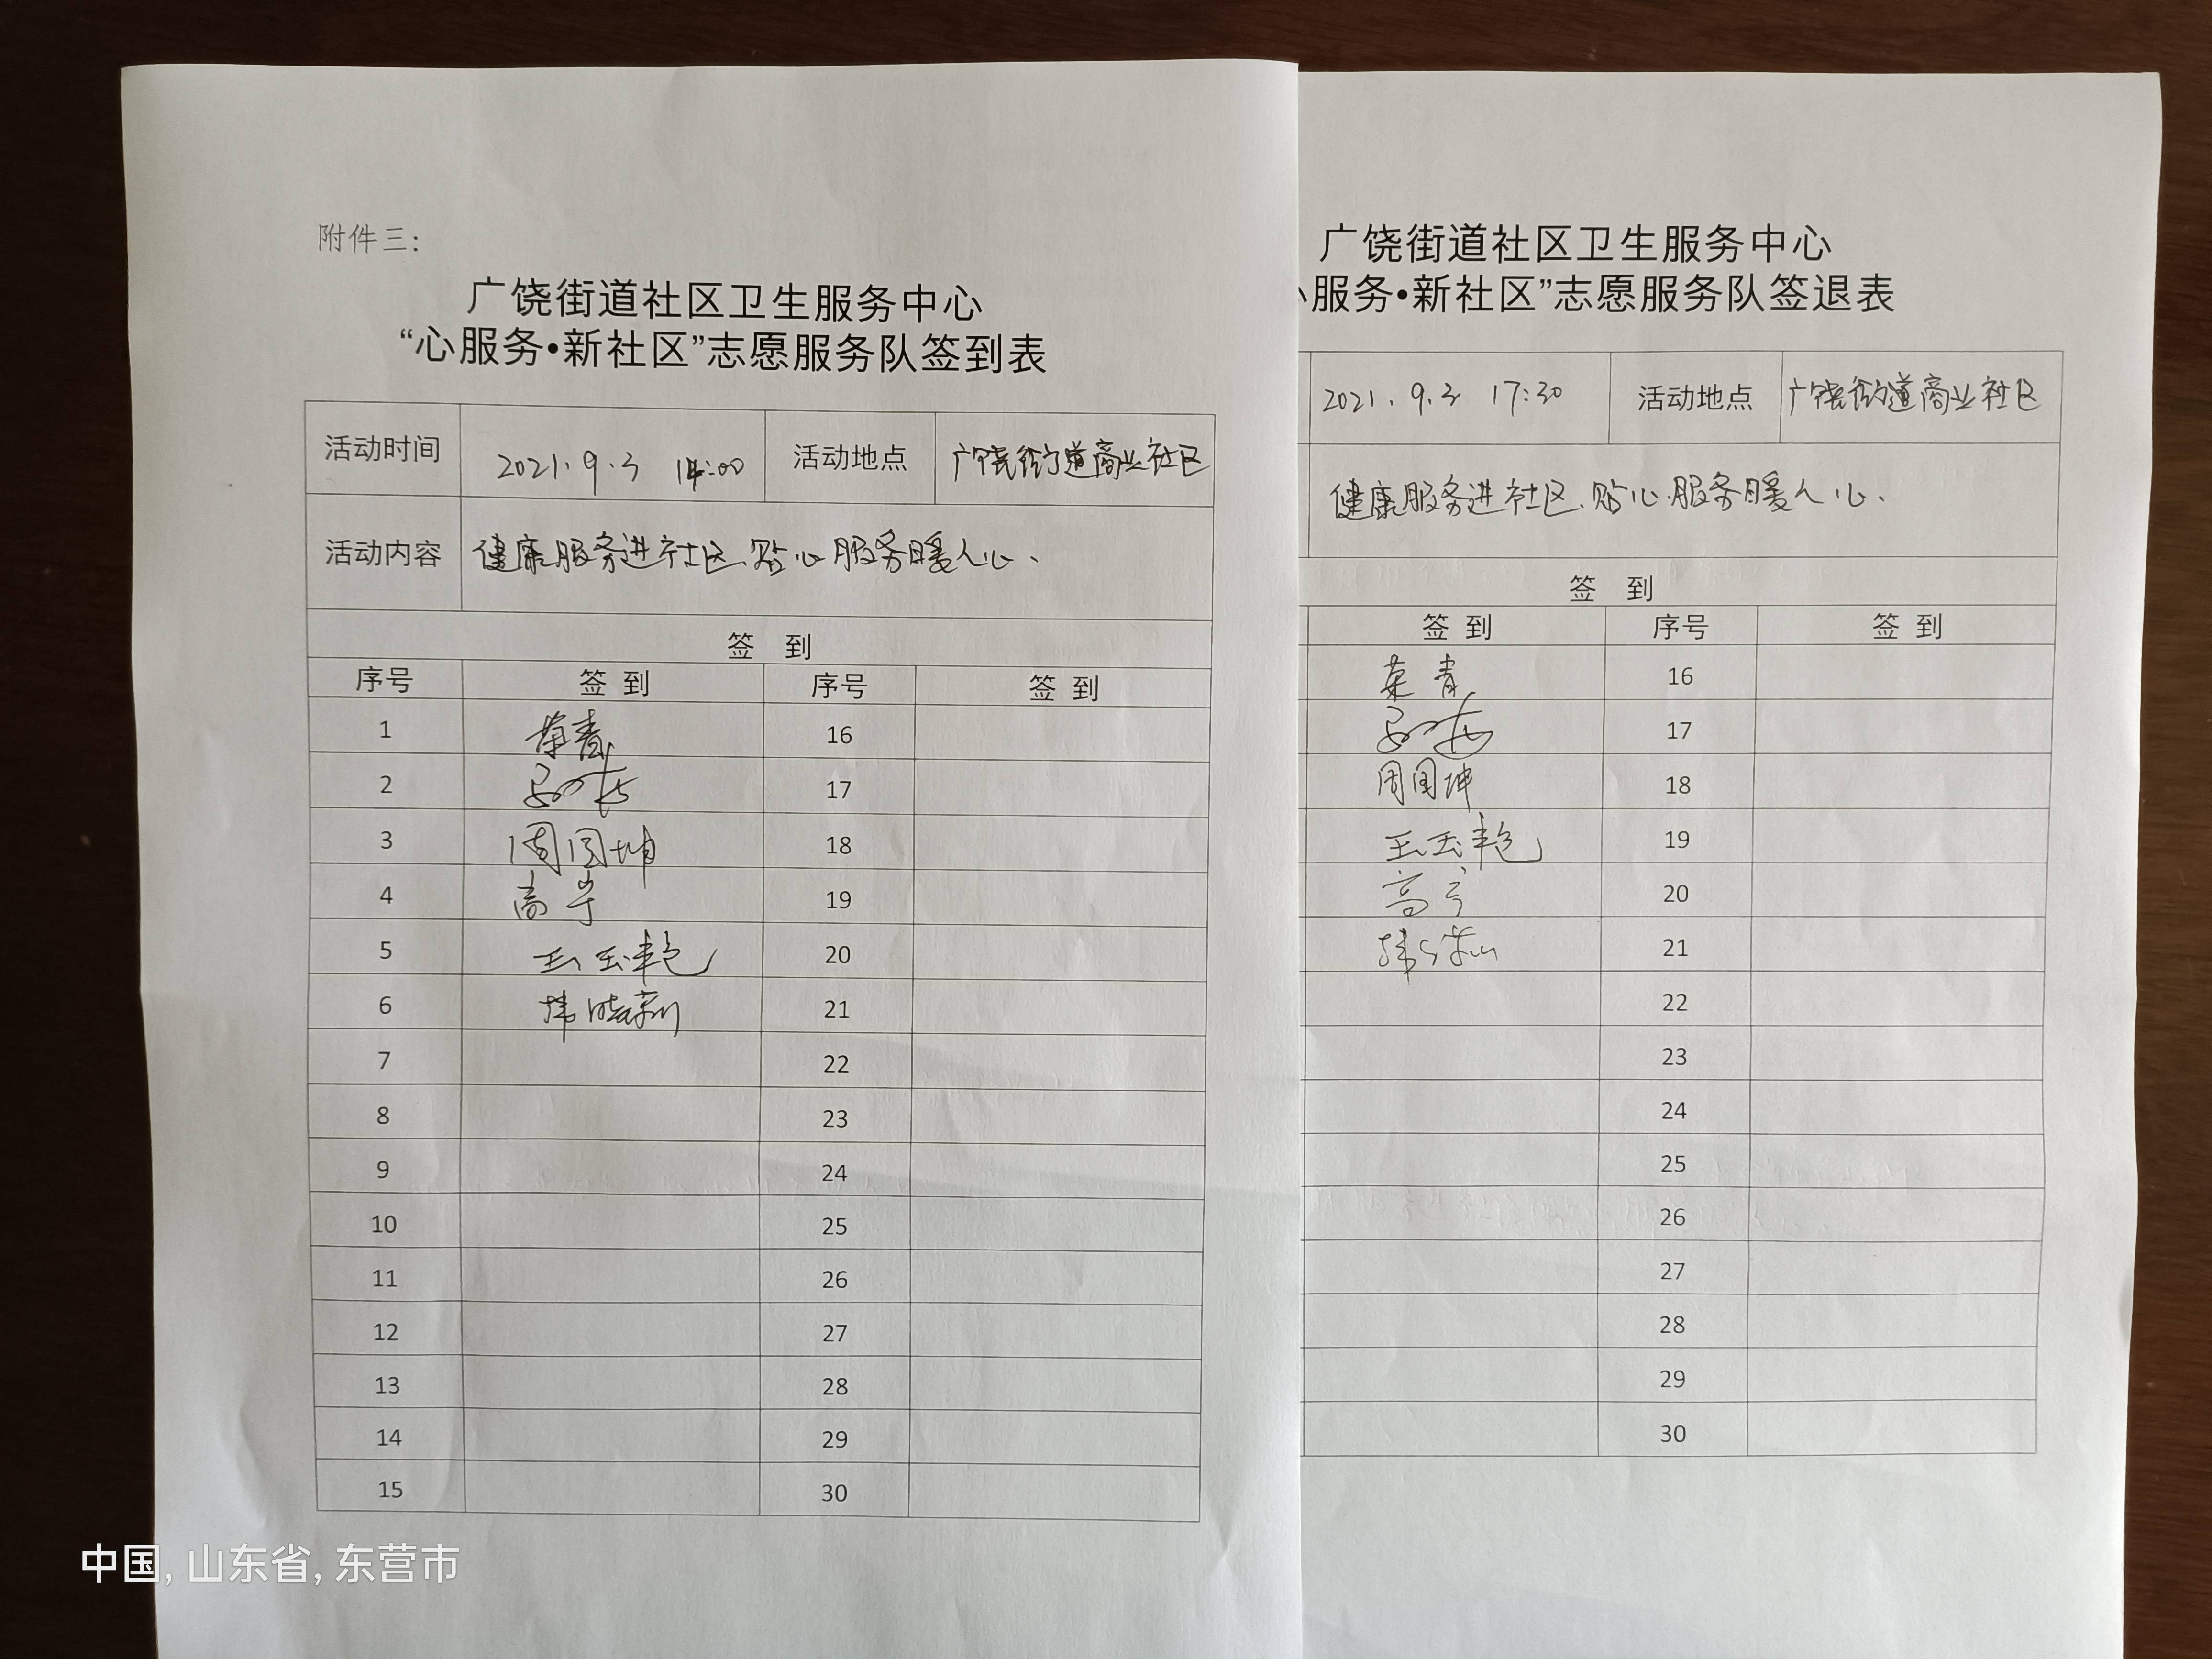 附件三：
广饶街道社区卫生服务中心
“心服务•新社区”志愿服务队签到表
活动时间 2021.9.3 14:00 活动地点 广饶街道商业社区
活动内容 健康服务进社区、贴心服务暖人心、
签 到
序号 签 到 序号 签 到
1 荣青 16
2 17
3 周国坤 18
4 高宁 19
5 王玉艳 20
6 韩晓莉 21
7 22
8 23
9 24
10 25
11 26
12 27
13 28
14 29
15 30
广饶街道社区卫生服务中心
服务•新社区”志愿服务队签退表
2021.9.3 17:30 活动地点 广饶街道商业社区
健康服务进社区、贴心服务暖人心、
签 到
签 到 序号 签 到
荣青 16
17
周国坤 18
王玉艳 19
高宁 20
21
22
23
24
25
26
27
28
29
30
中国, 山东省, 东营市